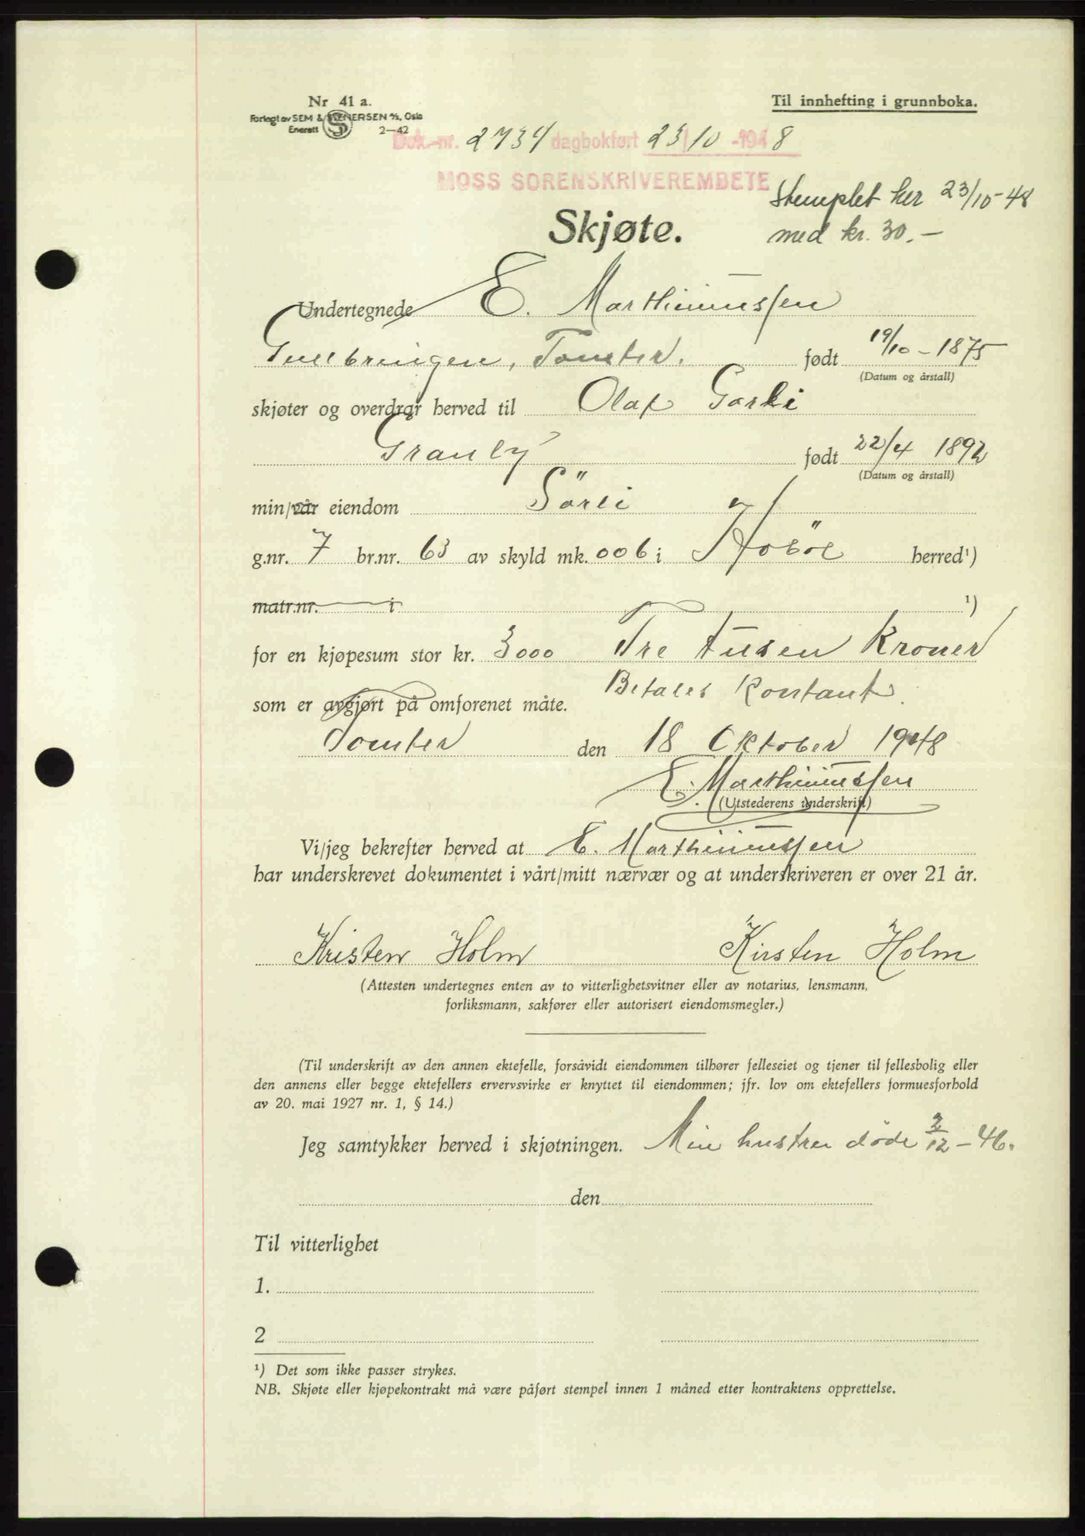 Nr 41 a.
Til innhefting i grunnboka.
Forlagt av SEM & STENERSEN A/S, Oslo
Enerett 2-42
Dok.-nr. 2734 dagbokført 23/10 -1948
MOSS SORENSKRIVEREMBETE
Stemplet her 23/10-48
med kr. 30.-
Skjøte.
Undertegnede E. Marthinussen
Gullbringen, Tomter. født 19/10-1875
(Datum og årstall)
skjøter og overdrar herved til Olaf Sørli
Granly født 22/4 1892
(Datum og årstall)
min/vår eiendom Sörli
g.nr. 7 br.nr. 63 av skyld mk. 006 i Hoböl herred¹)
matr.nr. i ¹)
for en kjøpesum stor kr. 3000 Tre tusen Kroner
Betales Kontant.
som er avgjort på omforenet måte.
Tomter den 18 Oktober 1948
E. Marthinussen
(Utstederens underskrift)
Vi/jeg bekrefter herved at E. Marthinussen
har underskrevet dokumentet i vårt/mitt nærvær og at underskriveren er over 21 år.
Kristen Holm Kirsten Holm
(Attesten undertegnes enten av to vitterlighetsvitner eller av notarius, lensmann,
forliksmann, sakfører eller autorisert eiendomsmegler.)
(Til underskrift av den annen ektefelle, forsåvidt eiendommen tilhører felleseiet og tjener til fellesbolig eller
den annens eller begge ektefellers ervervsvirke er knyttet til eiendommen; jfr. lov om ektefellers formuesforhold
av 20. mai 1927 nr. 1, § 14.)
Jeg samtykker herved i skjøtningen. Min hustru døde 2/12-46.
den
Til vitterlighet
1.
2
¹) Det som ikke passer strykes.
NB. Skjøte eller kjøpekontrakt må være påført stempel innen 1 måned etter kontraktens opprettelse.